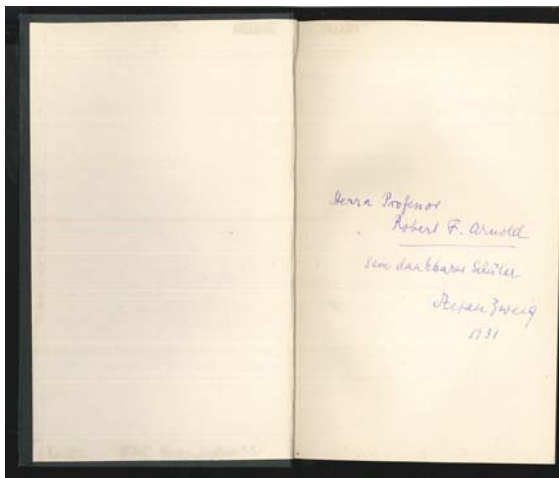 Herrn Professor
Robert F. Arnold
sein dankbarer Schüler
Stefan Zweig
1931